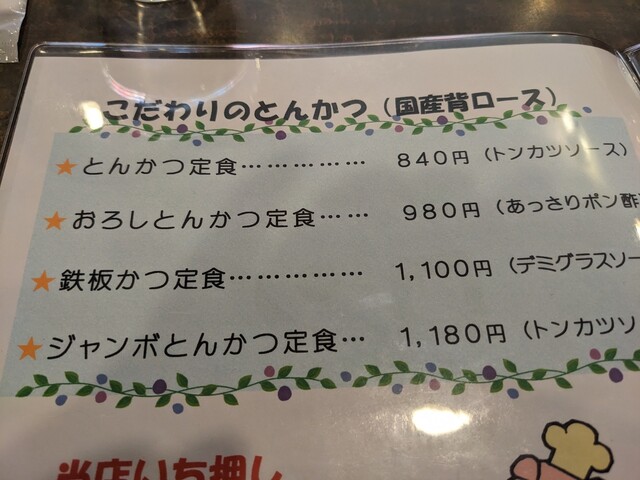 こだわりのとんかつ（国産背ロース）
★とんかつ定食…………… 840円（トンカツソース）
★おろしとんかつ定食…… 980円（あっさりポン酢
★鉄板かつ定食…………… 1,100円（デミグラスソー
★ジャンボとんかつ定食… 1,180円（トンカツソ
当店いち押し